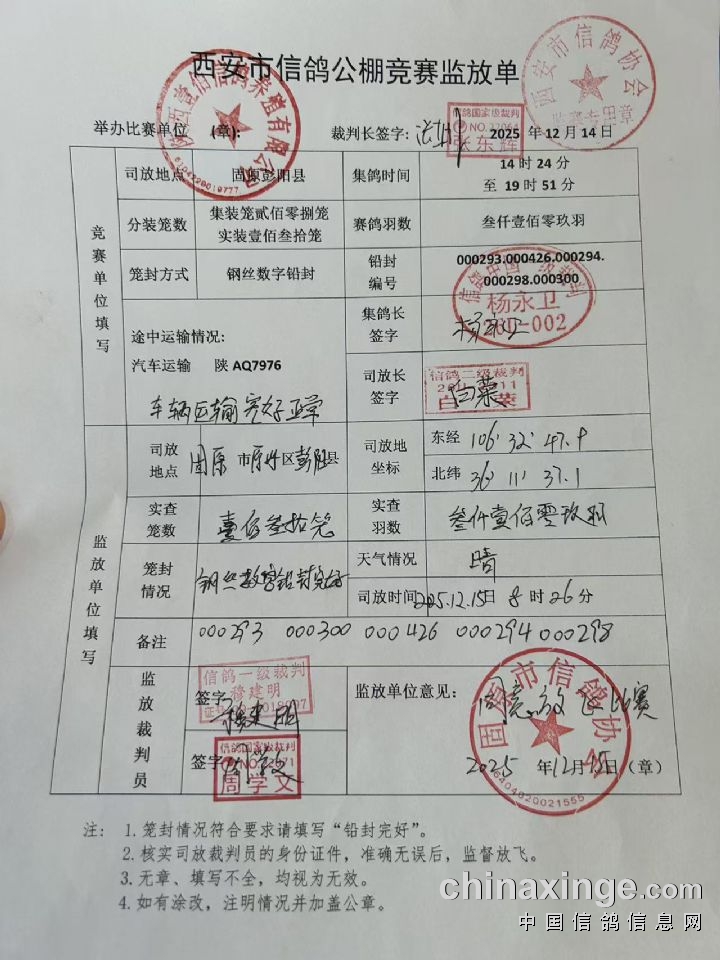 西安市信鸽公棚竞赛监放单
西安市信鸽协会
监赛专用章
举办比赛单位 (章): 裁判长签字: 2025 年 12 月 14 日
信鸽国家级裁判
张东辉
6104220019777
竞赛单位填写
司放地点 固原彭阳县 集鸽时间 14 时 24 分
至 19 时 51 分
分装笼数 集装笼贰佰零捌笼
实装壹佰叁拾笼
赛鸽羽数 叁仟壹佰零玖羽
笼封方式 钢丝数字铅封 铅封编号 000293.000426.000294.
000298.000300
途中运输情况:
汽车运输 陕 AQ7976
车辆运输完好正常
集鸽长签字 杨永卫
杨永卫
-002
司放长签字 白菜
信鸽二级裁判
监放单位填写
司放地点 固原市原州区彭阳县
司放地坐标 东经 106° 32' 47.9
北纬 36° 11' 37.1
实查笼数 壹佰叁拾笼 实查羽数 叁仟壹佰零玖羽
笼封情况 钢丝数字铅封完好 天气情况 晴
司放时间 2025.12.15日 8 时 26 分
备注 000293 000300 000426 000294 000298
监放裁判员
签字: 穆建明
信鸽一级裁判
穆建明
签字: 周学文
信鸽国家级裁判
周学文
监放单位意见: 同意放飞比赛
固原市信鸽协会
2025 年 12 月 15 日 (章)
6404020021555
注: 1. 笼封情况符合要求请填写“铅封完好”。
2. 核实司放裁判员的身份证件，准确无误后，监督放飞。
3. 无章、填写不全，均视为无效。
4. 如有涂改，注明情况并加盖公章。
chinaxinge.com
中国信鸽信息网